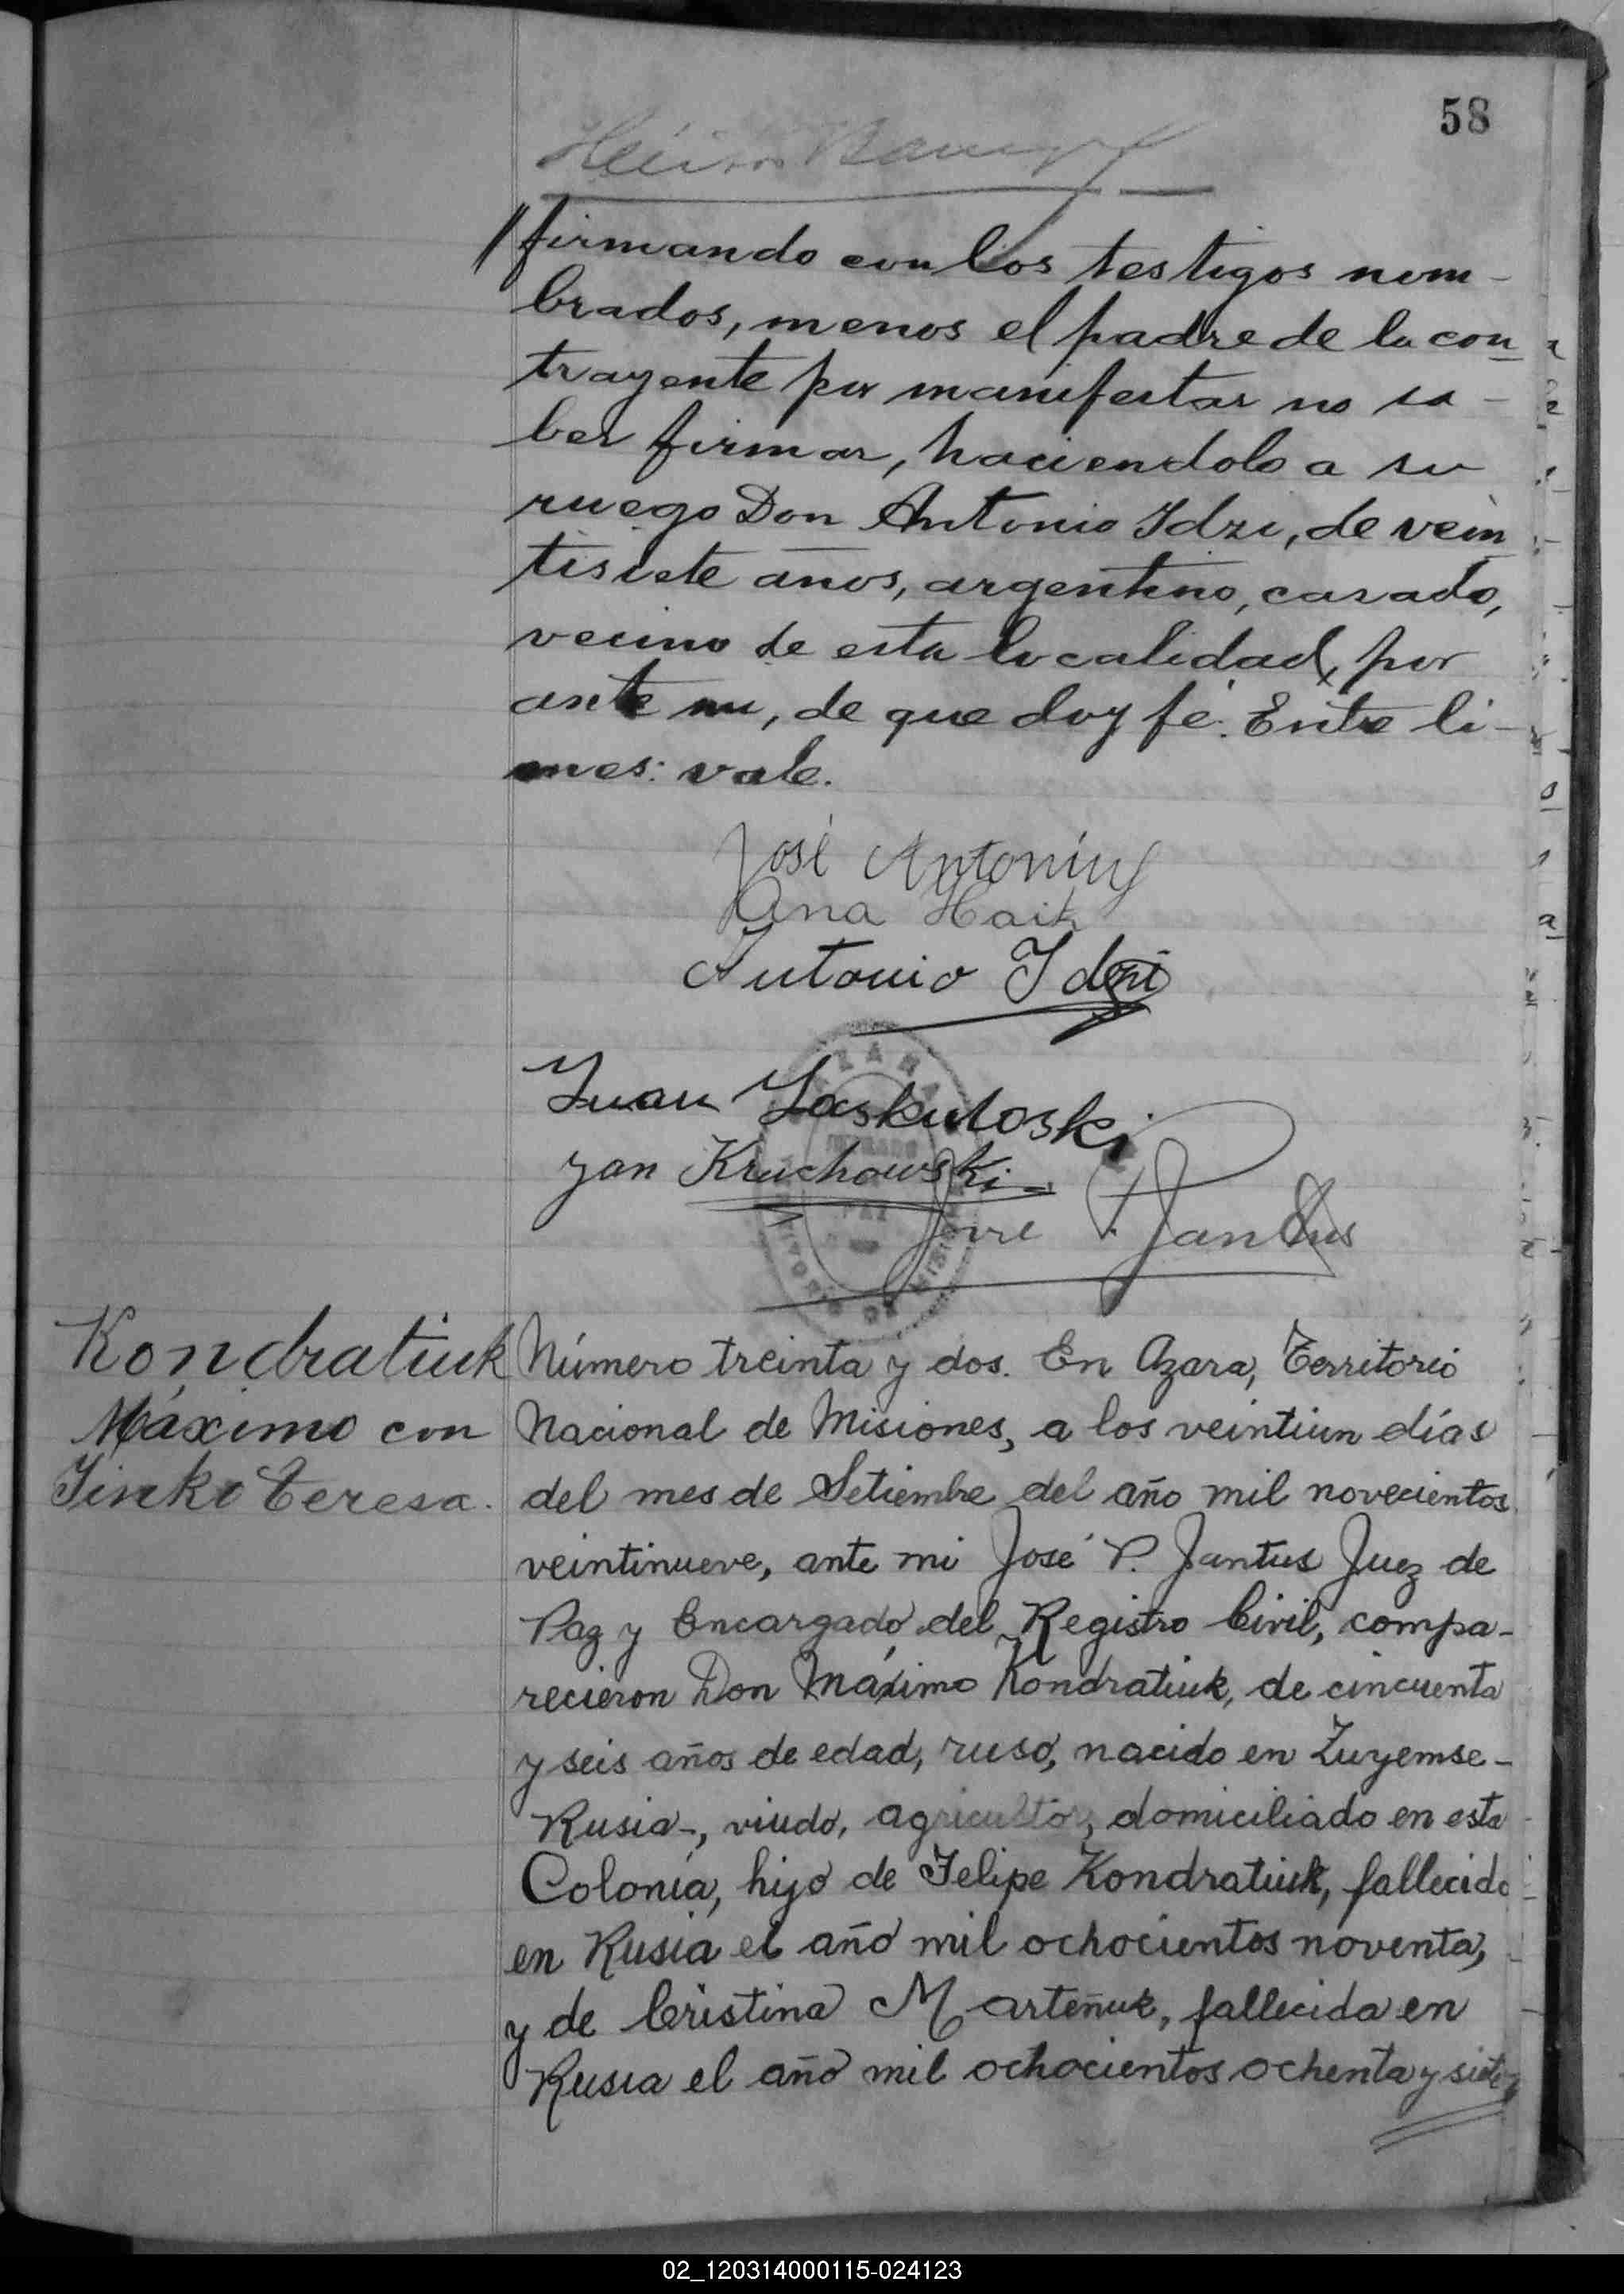 58
//firmando con los testigos nom-
brados, menos el padre de la con
trayente por manifestar no sa-
ber firmar, haciendolo a su
ruego Don Antonio Idzi, de vein
tisiete años, argentino, casado,
vecino de esta localidad, por
ante mi, de que doy fé. Entre li-
nes: vale.
José Antoniuf
Ana Haik
Antonio Idzi
Juan Jaskuloski
Jan Kruchowski
José P. Jantus
Kondratiuk
Máximo con
Jinko Teresa.
Número treinta y dos. En Azara, Territorio
Nacional de Misiones, a los veintiun días
del mes de Setiembre del año mil novecientos
veintinueve, ante mi José P. Jantus Juez de
Paz y Encargado del Registro Civil, compa-
recieron Don Máximo Kondratiuk, de cincuenta
y seis años de edad, ruso, nacido en Zuyemse-
Rusia-, viudo, agricultor, domiciliado en esta
Colonia, hijo de Felipe Kondratiuk, fallecido
en Rusia el año mil ochocientos noventa,
y de Cristina Marteñuk, fallecida en
Rusia el año mil ochocientos ochenta y siete,
02_120314000115-024123